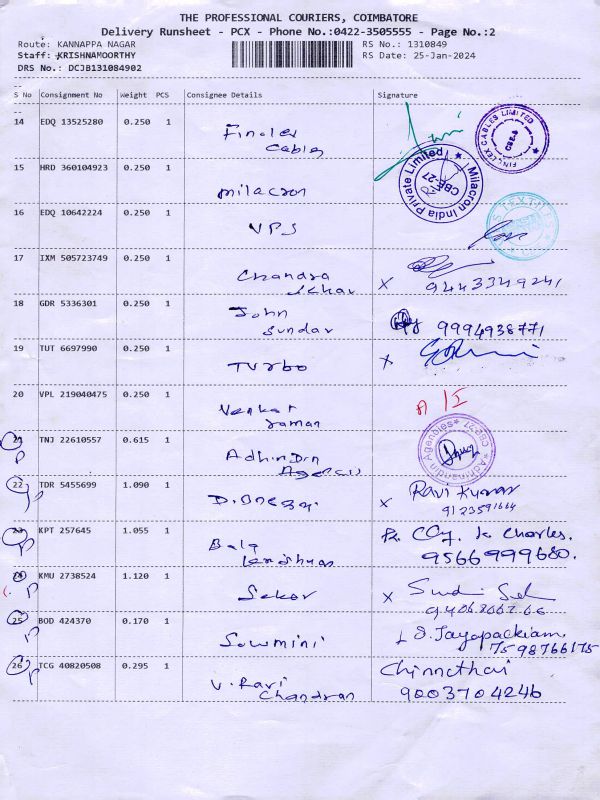 THE PROFESSIONAL COURIERS, COIMBATORE
Delivery Runsheet - PCX - Phone No.:0422-3505555 - Page No.:2
Route: KANNAPPA NAGAR RS No.: 1310849
Staff: KRISHNAMOORTHY RS Date: 25-Jan-2024
DRS No.: DCJB131084902
S No Consignment No Weight PCS Consignee Details Signature
14 EDQ 13525280 0.250 1 Finolex
Cables
FINOLEX CABLES LIMITED
CBE-8
15 HRD 360104923 0.250 1 milacron
Milacron India Private Limited
CBE-27
16 EDQ 10642224 0.250 1 VPS
TEXTILES
17 IXM 505723749 0.250 1 Chandra
Sekar X 9443349241
18 GDR 5336301 0.250 1 John
Sundar 9994938771
19 TUT 6697990 0.250 1 Turbo X
20 VPL 219040475 0.250 1 Venkat
raman
21 TNJ 22610557 0.615 1
Agencies
22 TDR 5455699 1.090 1 X Ravi Kumar
9123591664
23 KPT 257645 1.055 1 Bala
Charles.
9566999680.
24 KMU 2738524 1.120 1 Sekar X
25 BOD 424370 0.170 1 Sowmini S. Jayapackiam
7598766175
26 TCG 40820508 0.295 1 V. Ravi
Chandran Chinnathai
9003704246